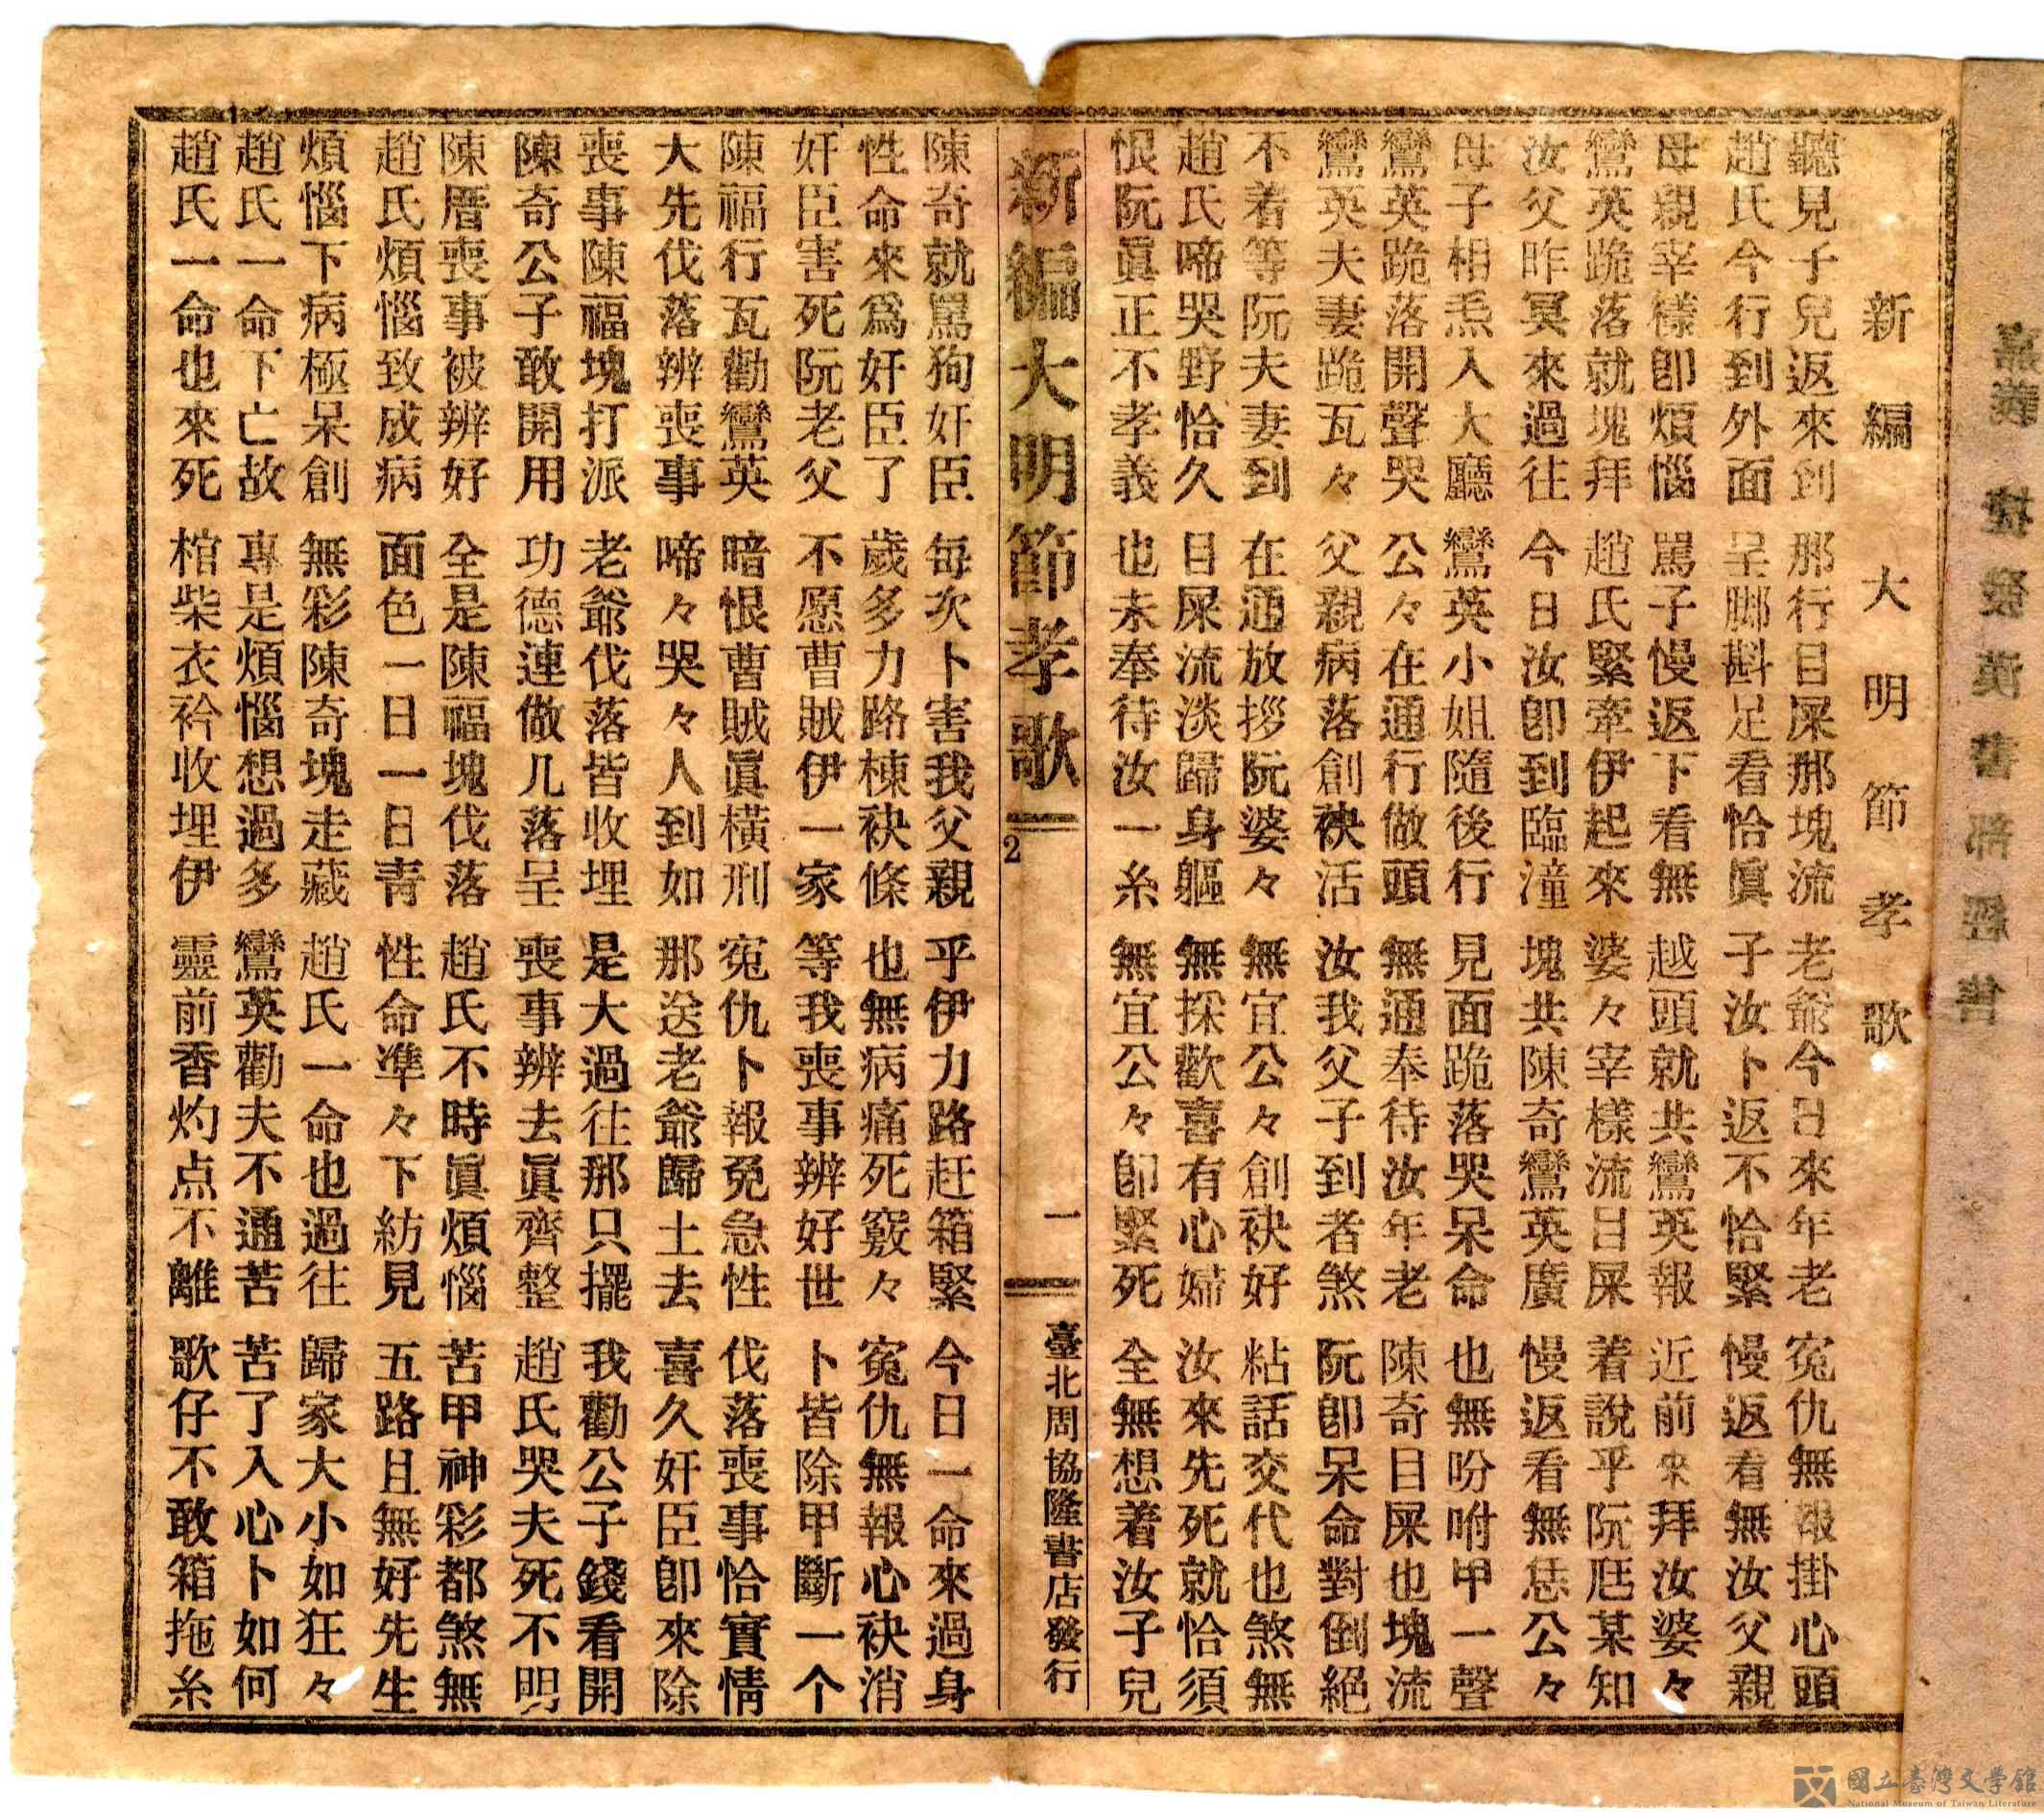 新編大明節孝歌
聽見子兒返來到 那行目屎那塊流 老爺今日來年老 寃仇無報掛心頭
趙氏今行到外面 呈脚斟足看恰眞 子汝卜返不恰緊 慢返看無汝父親
母親宰樣卽煩惱 罵子慢返下看無 越頭就共鸞英報 近前來拜汝婆々
鸞英跪落就塊拜 趙氏緊牽伊起來 婆々宰樣流目屎 着說乎阮尫某知
汝父昨冥來過往 今日汝卽到臨潼 塊共陳奇鸞英廣 慢返看無恁公々
母子相𤆬入大廳 鸞英小姐隨後行 見面跪落哭呆命 也無吩咐甲一聲
鸞英跪落開聲哭 公々在通行做頭 無通奉待汝年老 陳奇目屎也塊流
鸞英夫妻跪瓦々 父親病落創袂活 汝我父子到者煞 阮卽呆命對倒絕
不着等阮夫妻到 在通放拶阮婆々 無宜公々創袂好 粘話交代也煞無
趙氏啼哭野恰久 目屎流淡歸身軀 無採歡喜有心婦 汝來先死就恰須
恨阮眞正不孝義 也未奉待汝一糸 無宜公々卽緊死 全無想着汝子兒
新編大明節孝歌 2 一 臺北周協隆書店發行
陳奇就罵狗奸臣 每次卜害我父親 乎伊力路赶箱緊 今日一命來過身
性命來爲奸臣了 歲多力路棟袂條 也無病痛死竅々 寃仇無報心袂消
奸臣害死阮老父 不愿曹賊伊一家 等我喪事辨好世 卜皆除甲斷一个
陳福行瓦勸鸞英 暗恨曹賊眞橫刑 寃仇卜報免急性 伐落喪事恰實情
大先伐落辨喪事 啼々哭々人到如 那送老爺歸土去 喜久奸臣卽來除
喪事陳福塊打派 老爺伐落皆收埋 是大過往那只擺 我勸公子錢看開
陳奇公子敢開用 功德連做几落呈 喪事辨去眞齊整 趙氏哭夫死不明
陳厝喪事被辨好 全是陳福塊伐落 趙氏不時眞煩惱 苦甲神彩都煞無
趙氏煩惱致成病 面色一日一日靑 性命凖々下紡見 五路且無好先生
煩惱下病極呆創 無彩陳奇塊走藏 趙氏一命也過往 歸家大小如狂々
趙氏一命下亡故 專是煩惱想過多 鸞英勸夫不通苦 苦了入心卜如何
趙氏一命也來死 棺柴衣衿收埋伊 靈前香灼点不離 歌仔不敢箱拖糸
嘉義 捷發漢書部經售
國立臺灣文學館
National Museum of Taiwan Literature